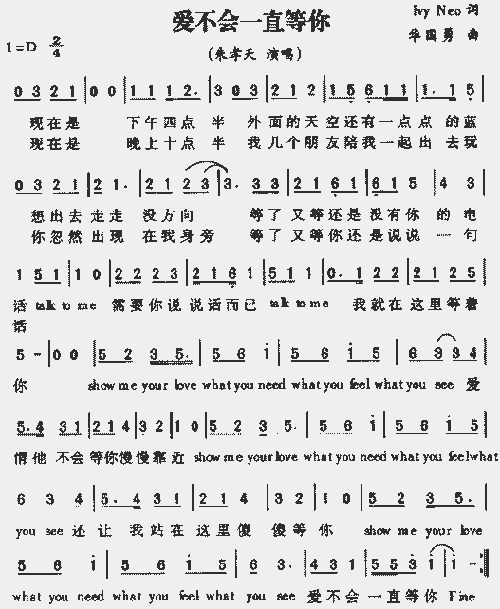 爱不会一直等你
Ivy Neo 词
1=D 2/4
华国勇 曲
(朱孝天 演唱)
0 3 2 1 | 0 0 | 1 1 1 2. | 3 0 3 | 2 1 2 | 1 5 6 1 1 | 1. 1 5
现在是 下午四点 半 外面的天空还有一点点的蓝
现在是 晚上十点 半 我几个朋友陪我一起出去玩
0 3 2 1 | 2 1. | 2 1 2 3 | 3. 3 3 | 2 1 6 1 | 6 1 5 | 4 3
想出去走走 没方向 等了又等还是没有你的电
你忽然出现 在我身旁 等了又等你还是说说一句
1 5 1 | 1 0 | 2 2 2 3 | 2 1 6 1 | 5 1 1 | 0. 1 2 2 | 2 1 2 5
话 talk to me 需要你说说话而已 talk to me 我就在这里等着
话
5 - | 0 0 | 5 2 3 5. | 5 6 i | 5 6 i 5 | 6 3 3 4
你 show me your love what you need what you feel what you see 爱
5. 4 3 1 | 2 1 4 | 3 2 | 1 0 | 5 2 3 5. | 5 6 i | 5 6 i 5
情他不会等你慢慢靠近 show me your love what you need what you feel what
6 3 4 | 5. 4 3 1 | 2 1 4 | 3 2 | 1 0 | 5 2 3 5.
you see 还让我站在这里傻傻等你 show me your love
5 6 i | 5 6 i 5 | 6 3. | 4 3 1 | 5 5 3 i | i - :||
what you need what you feel what you see 爱不会一直等你 Fine